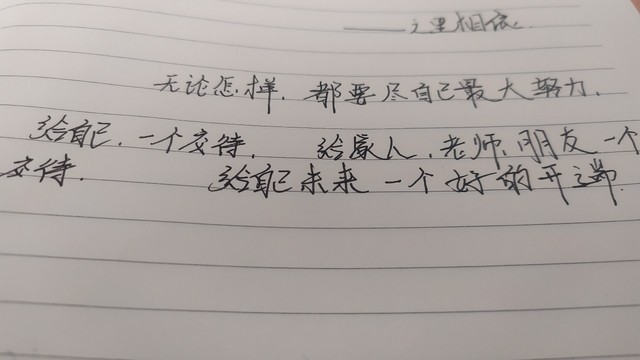 ——之里相依
无论怎样，都要尽自己最大努力．
给自己．一个交待．给家人．老师．朋友一个
交待．给自己未来一个好的开端．